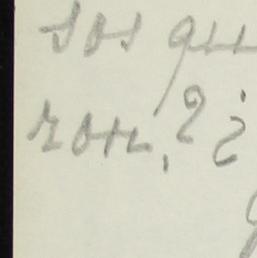 sos qu
ron,? ¿